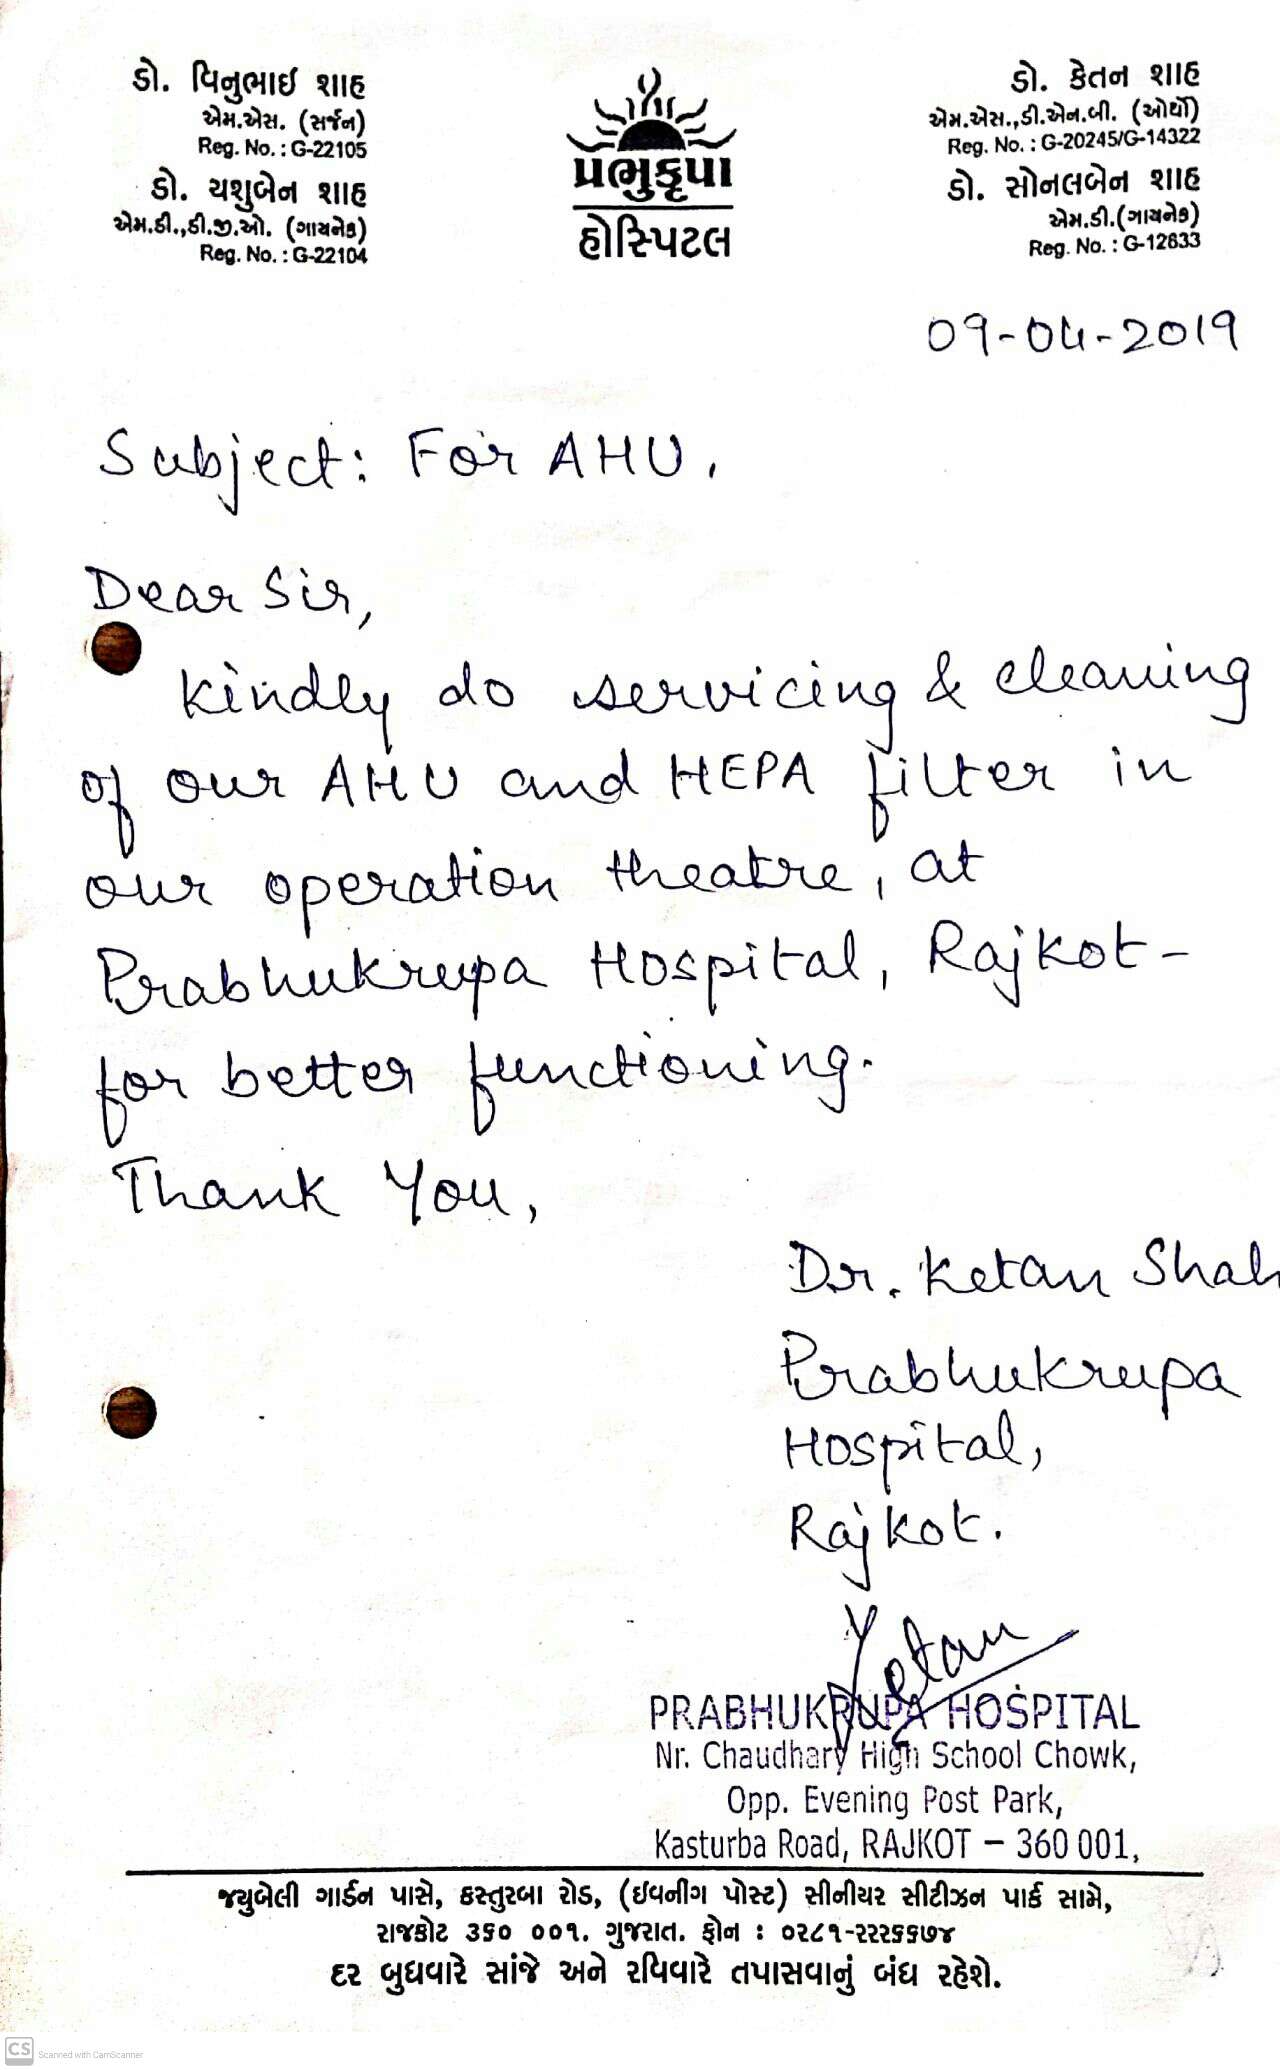 ડો. વિનુભાઈ શાહ
એમ.એસ. (સર્જન)
Reg. No. : G-22105
ડો. યશુબેન શાહ
એમ.ડી.,ડી.જી.ઓ. (ગાયનેક)
Reg. No. : G-22104
પ્રભુકૃપા
હોસ્પિટલ
ડો. કેતન શાહ
એમ.એસ.,ડી.એન.બી. (ઓર્થો)
Reg. No. : G-20245/G-14322
ડો. સોનલબેન શાહ
એમ.ડી.(ગાયનેક)
Reg. No. : G-12633
09-04-2019
Subject: For AHU,
Dear Sir,
Kindly do servicing & cleaning
of our AHU and HEPA filter in
our operation theatre, at
Prabhukrupa Hospital, Rajkot-
for better functioning.
Thank You,
Dr. Ketan Shah
Prabhukrupa
Hospital,
Rajkot.
Ketan
PRABHUKRUPA HOSPITAL
Nr. Chaudhary High School Chowk,
Opp. Evening Post Park,
Kasturba Road, RAJKOT – 360 001,
જ્યુબેલી ગાર્ડન પાસે, કસ્તુરબા રોડ, (ઈવનીગ પોસ્ટ) સીનીયર સીટીઝન પાર્ક સામે,
રાજકોટ ૩૬૦ ૦૦૧. ગુજરાત. ફોન : ૦૨૮૧-૨૨૨૬૬૭૪
દર બુધવારે સાંજે અને રવિવારે તપાસવાનું બંધ રહેશે.
CS Scanned with CamScanner